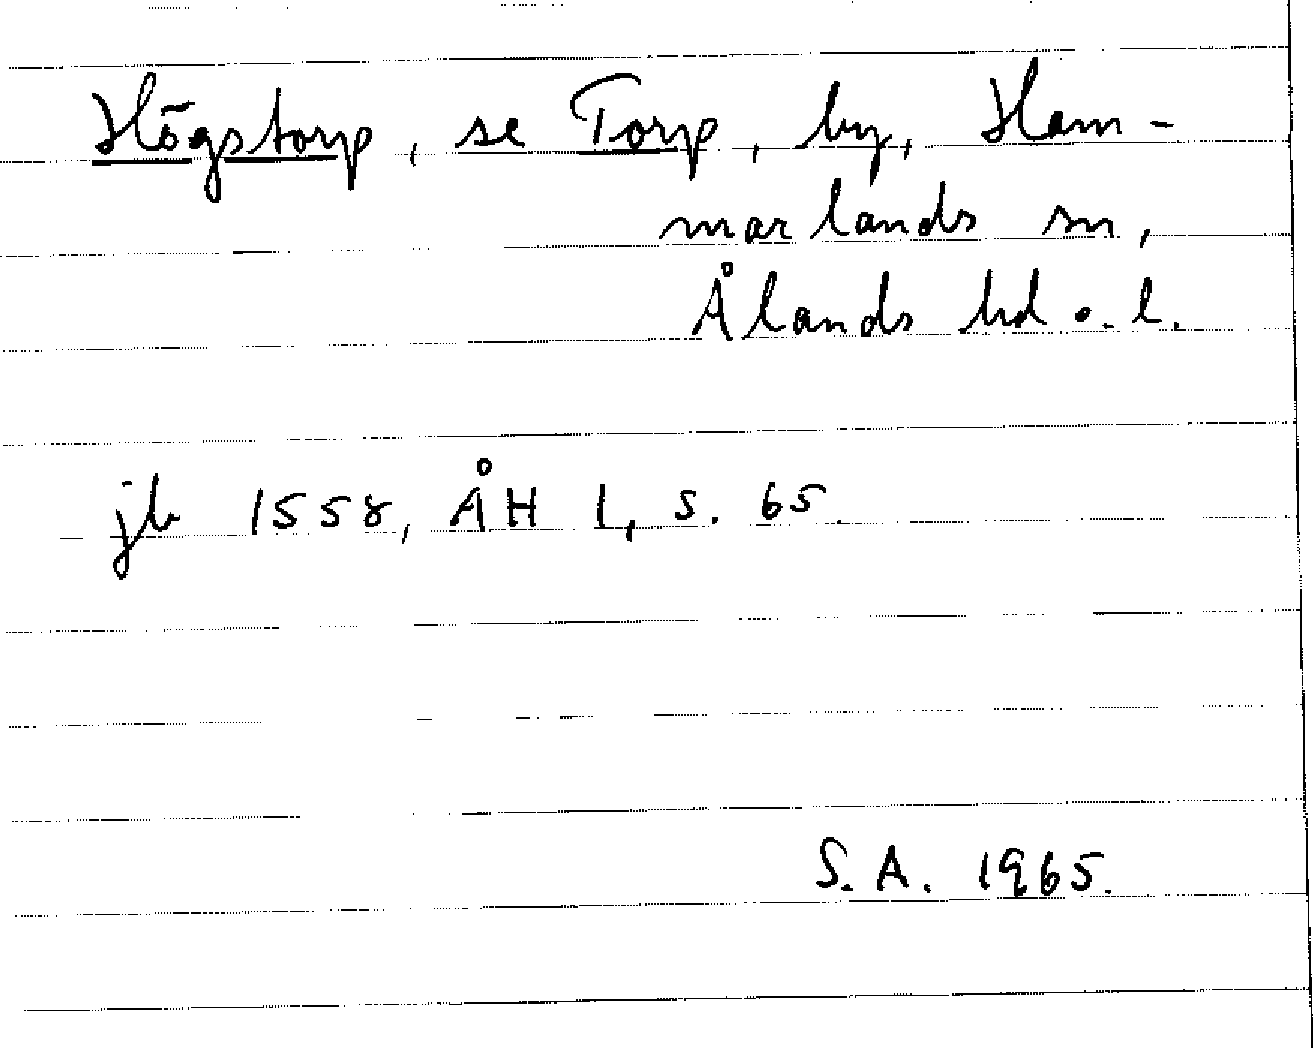 Högstorp, se Torp, by, Ham-
marlands sn,
Ålands hd o. l.
jb 1558, ÅH I, s. 65.
S. A. 1965.